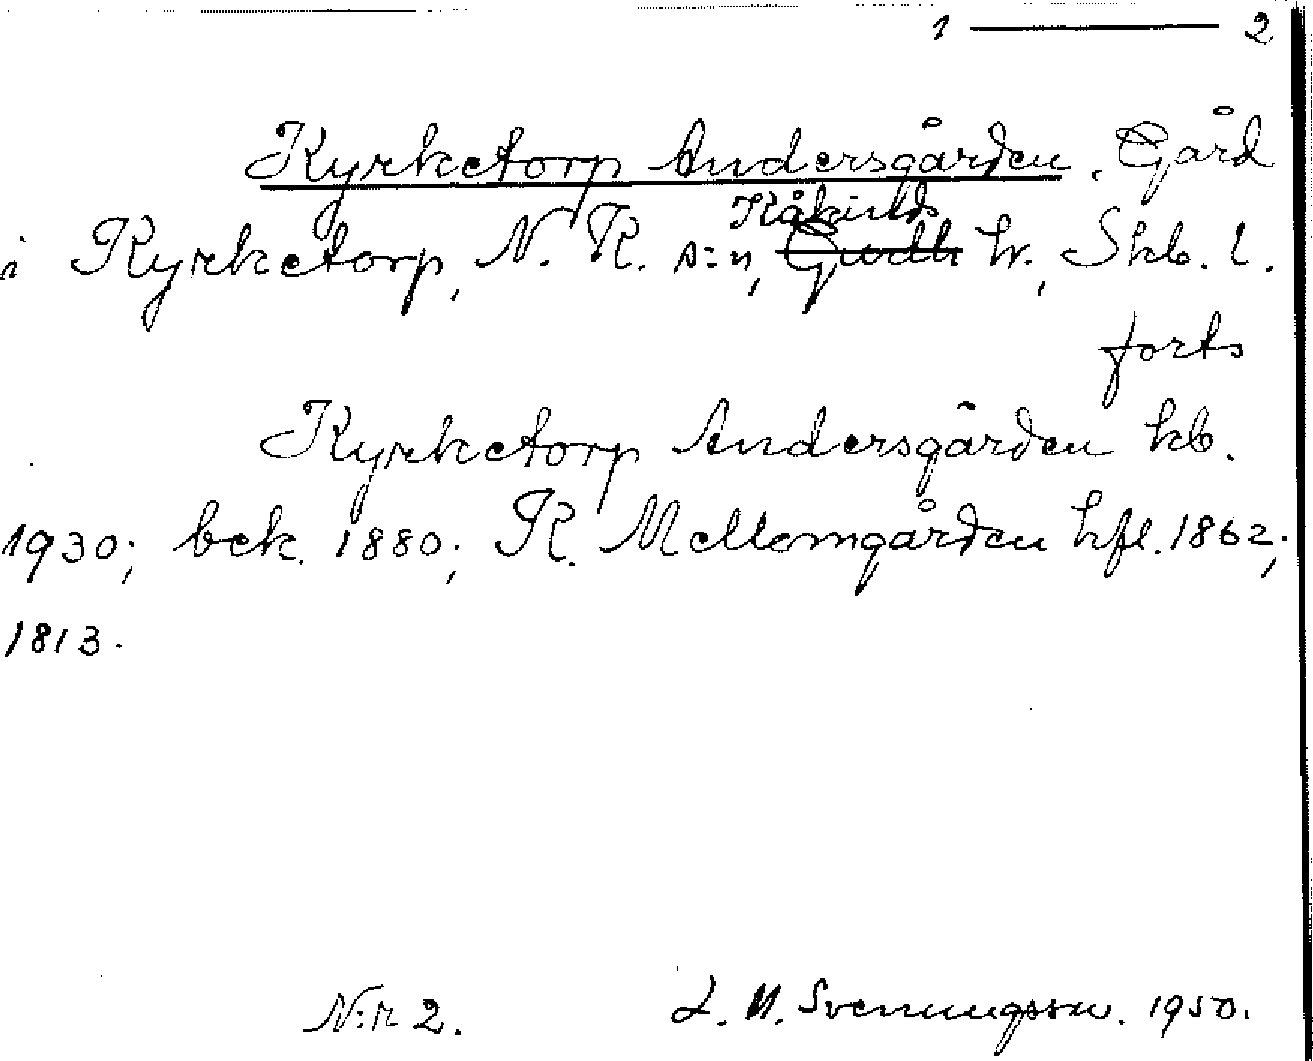 1 — 2
Kyrketorp Andersgården. Gård
Kåkinds
i Kyrketorp, N. K. s:n, Gudh hr., Skb. l.
forts
Kyrketorp Andersgården kb.
1930; bek. 1880; K. Mellomgården hfl. 1862;
1813.
N:r 2. L. M. Svenungsson. 1950.